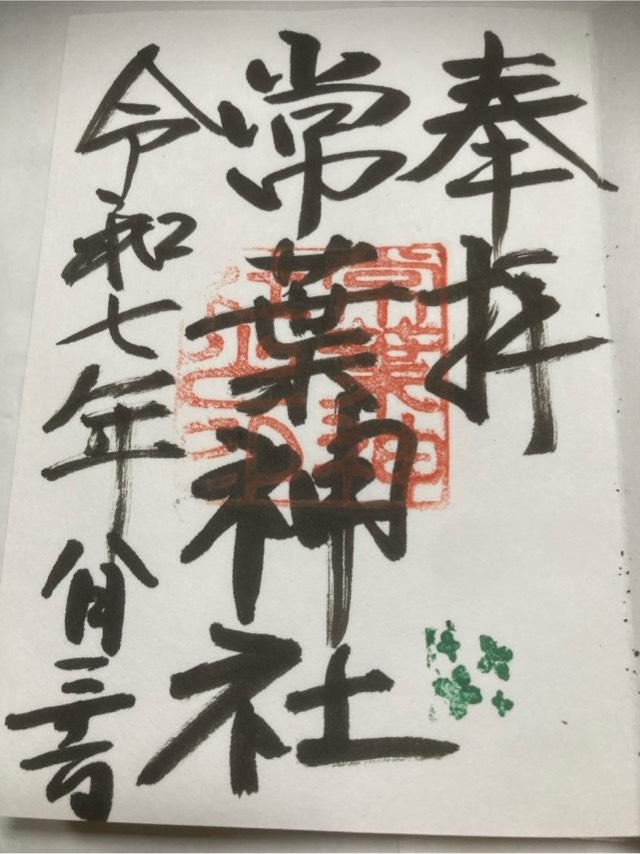 奉拝
常葉神社
令和七年八月三十一日